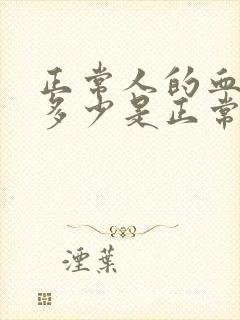 正常人的血
多少是正常
湮葉